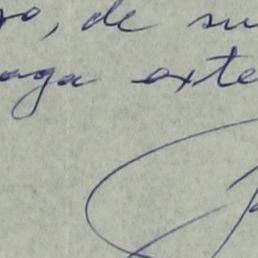 yo, de su
aga exte